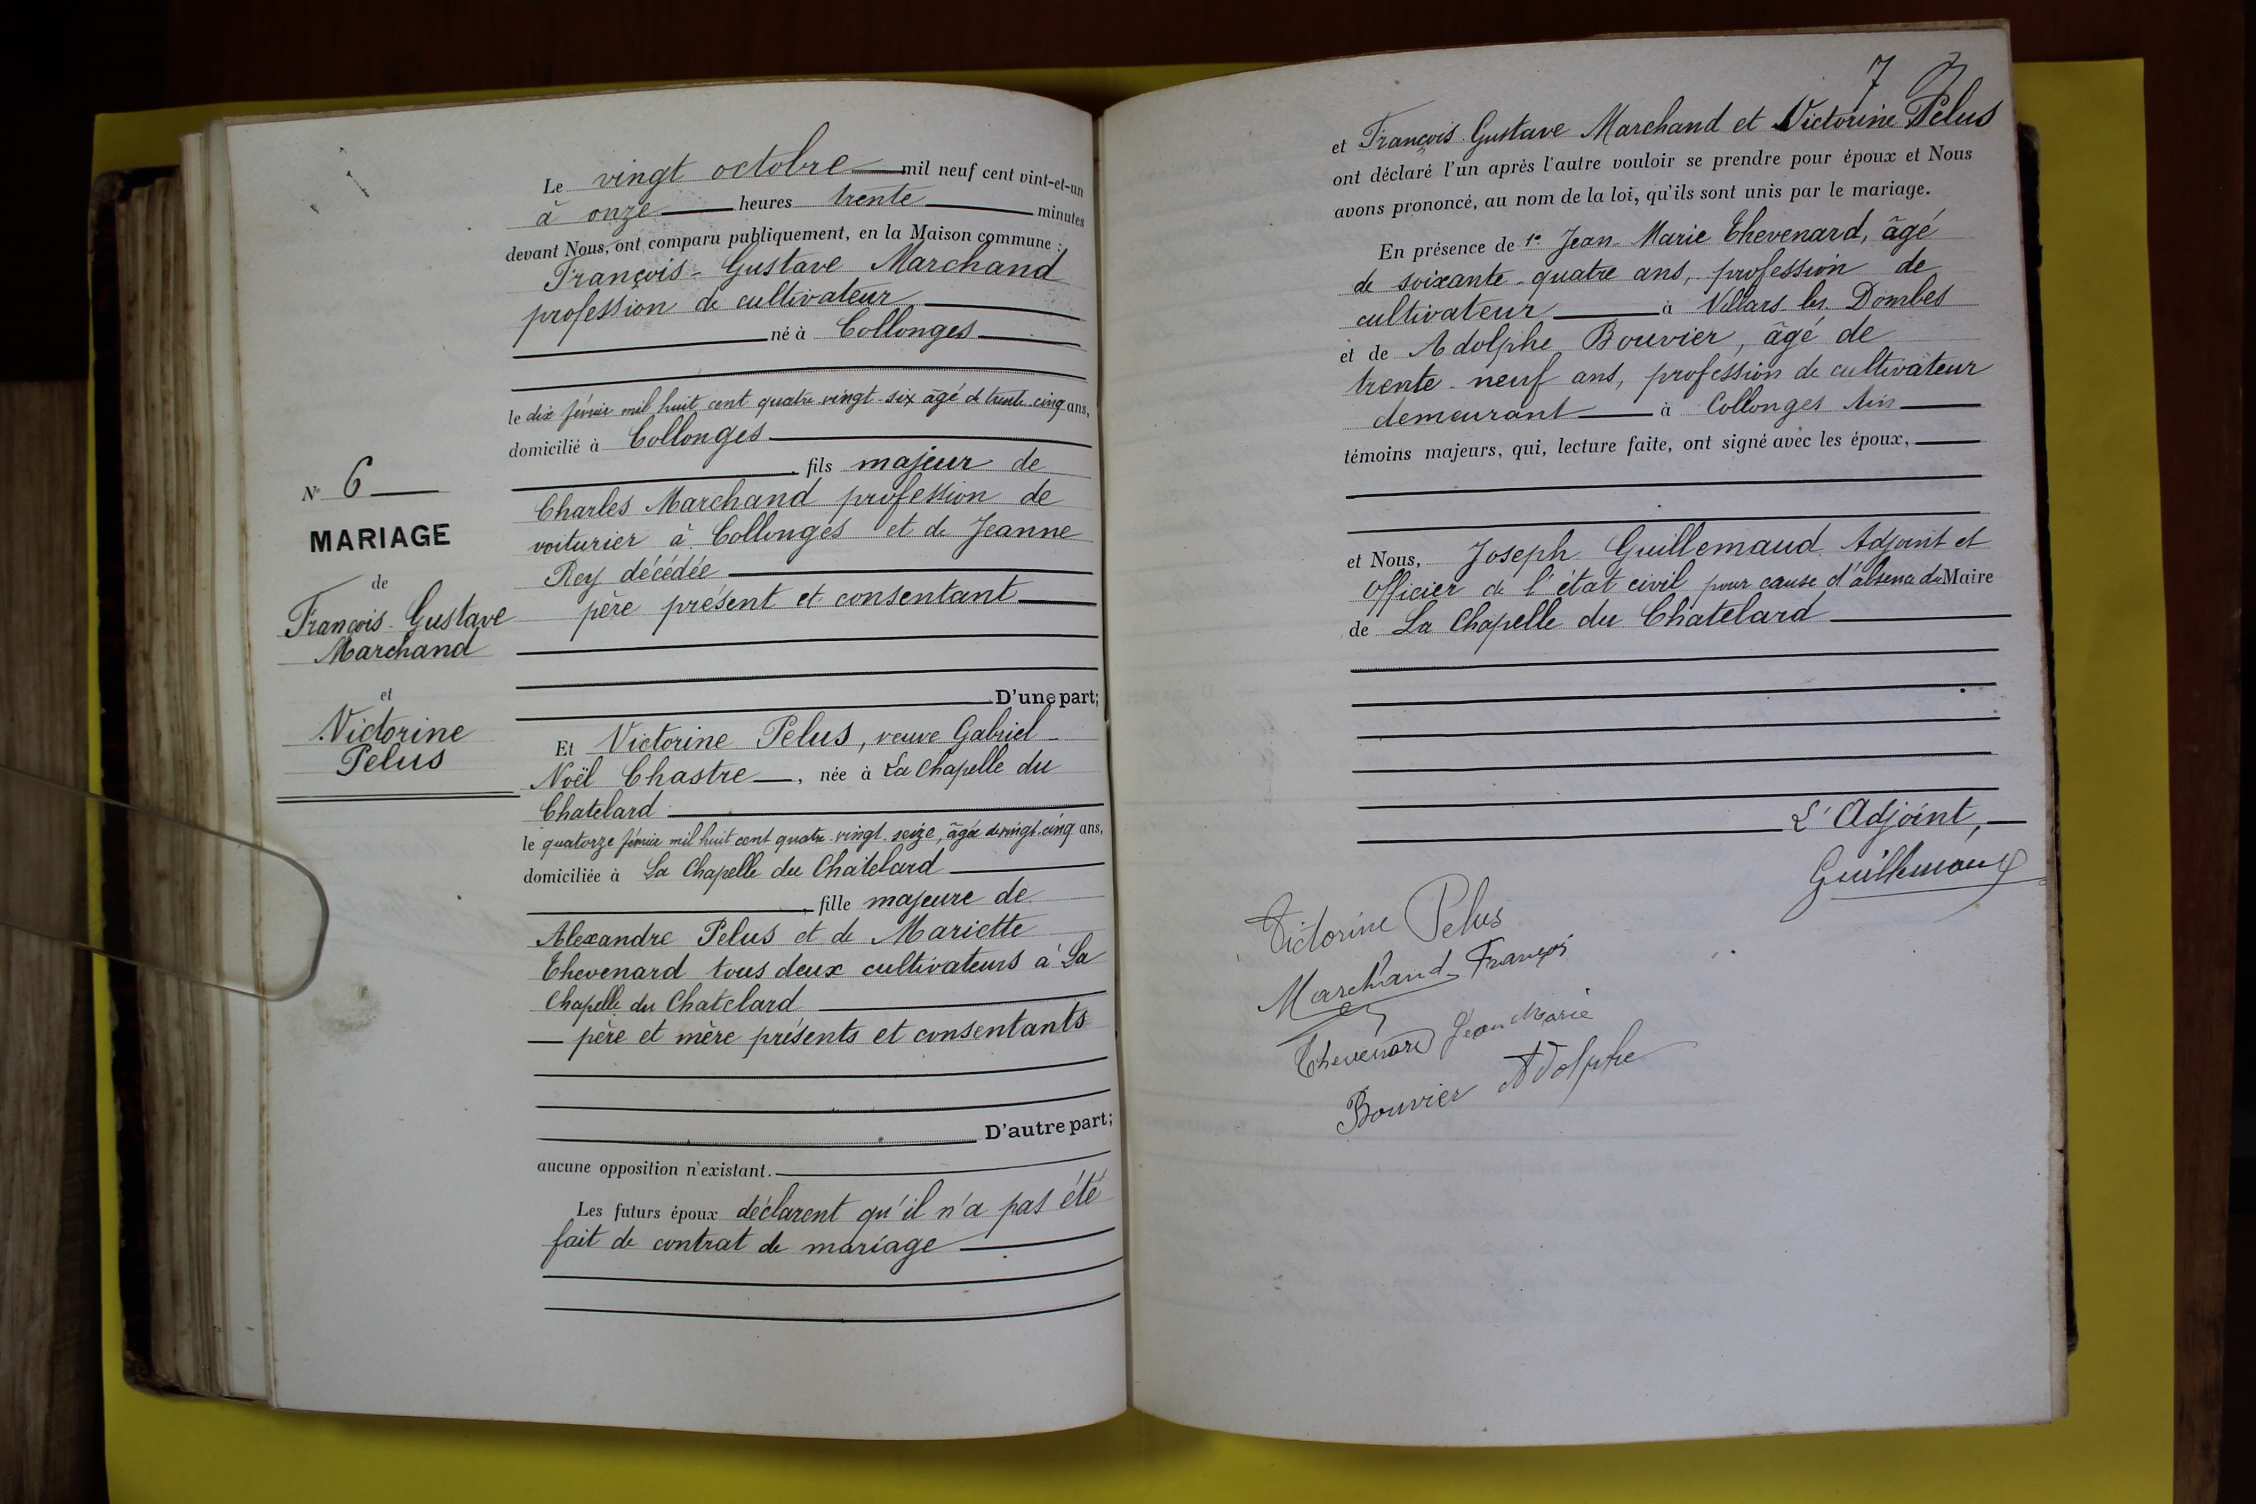 Le vingt octobre mil neuf cent vint-et-un
à onze heures trente minutes
devant Nous, ont comparu publiquement, en la Maison commune :
François-Gustave Marchand
profession de cultivateur
né à Collonges
le dix février mil huit cent quatre vingt-six âgé de trente-cinq ans,
domicilié à Collonges
, fils majeur de
Charles Marchand profession de
voiturier à Collonges et de Jeanne
Rey décédée
père présent et consentant
D'une part;
Et Victorine Pelus, veuve Gabriel
Noël Chastre, née à La Chapelle du
Chatelard
le quatorze février mil huit cent quatre-vingt-seize, âgée de vingt-cinq ans,
domiciliée à La Chapelle du Chatelard
, fille majeure de
Alexandre Pelus et de Mariette
Thevenard tous deux cultivateurs à La
Chapelle du Chatelard
père et mère présents et consentants
D'autre part;
aucune opposition n'existant.
Les futurs époux déclarent qu'il n'a pas été
fait de contrat de mariage
N° 6
MARIAGE
de
François-Gustave
Marchand
et
Victorine
Pelus
7
et François-Gustave Marchand et Victorine Pelus
ont déclaré l'un après l'autre vouloir se prendre pour époux et Nous
avons prononcé, au nom de la loi, qu'ils sont unis par le mariage.
En présence de 1° Jean-Marie Thevenard, âgé
de soixante-quatre ans, profession de
cultivateur à Villars-les-Dombes
et de Adolphe Bouvier, âgé de
trente-neuf ans, profession de cultivateur
demeurant à Collonges Ain
témoins majeurs, qui, lecture faite, ont signé avec les époux,
et Nous, Joseph Guillemaud Adjoint et
Officier de l'état civil pour cause d'absence du Maire
de La Chapelle du Chatelard
L'Adjoint,
Guillemaud
Victorine Pelus
Marchand François
Thevenard Jean Marie
Bouvier Adolphe